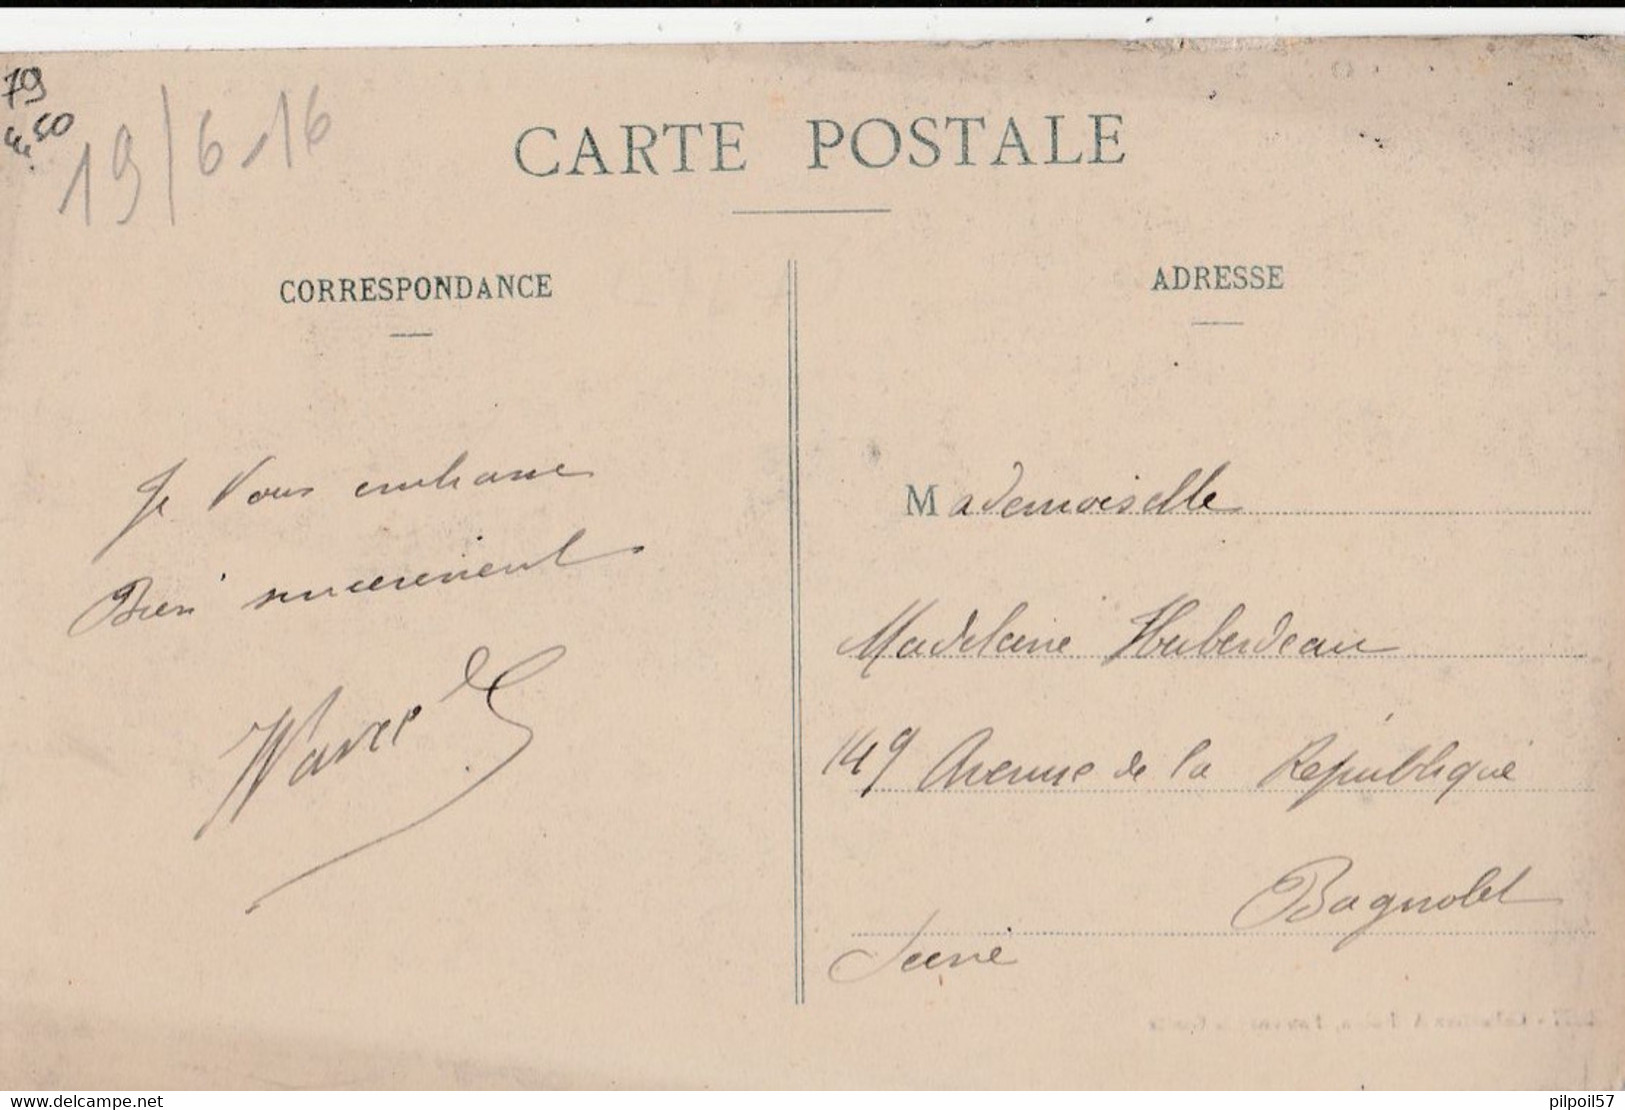 79
19/6-16
CARTE POSTALE
CORRESPONDANCE
ADRESSE
Je vous embrasse
Bien sincerement
Marcel
Mademoiselle
Madelaine Huberdeau
149 Avenue de la République
Bagnolet
Seine
delcampe.net
pilpoil57